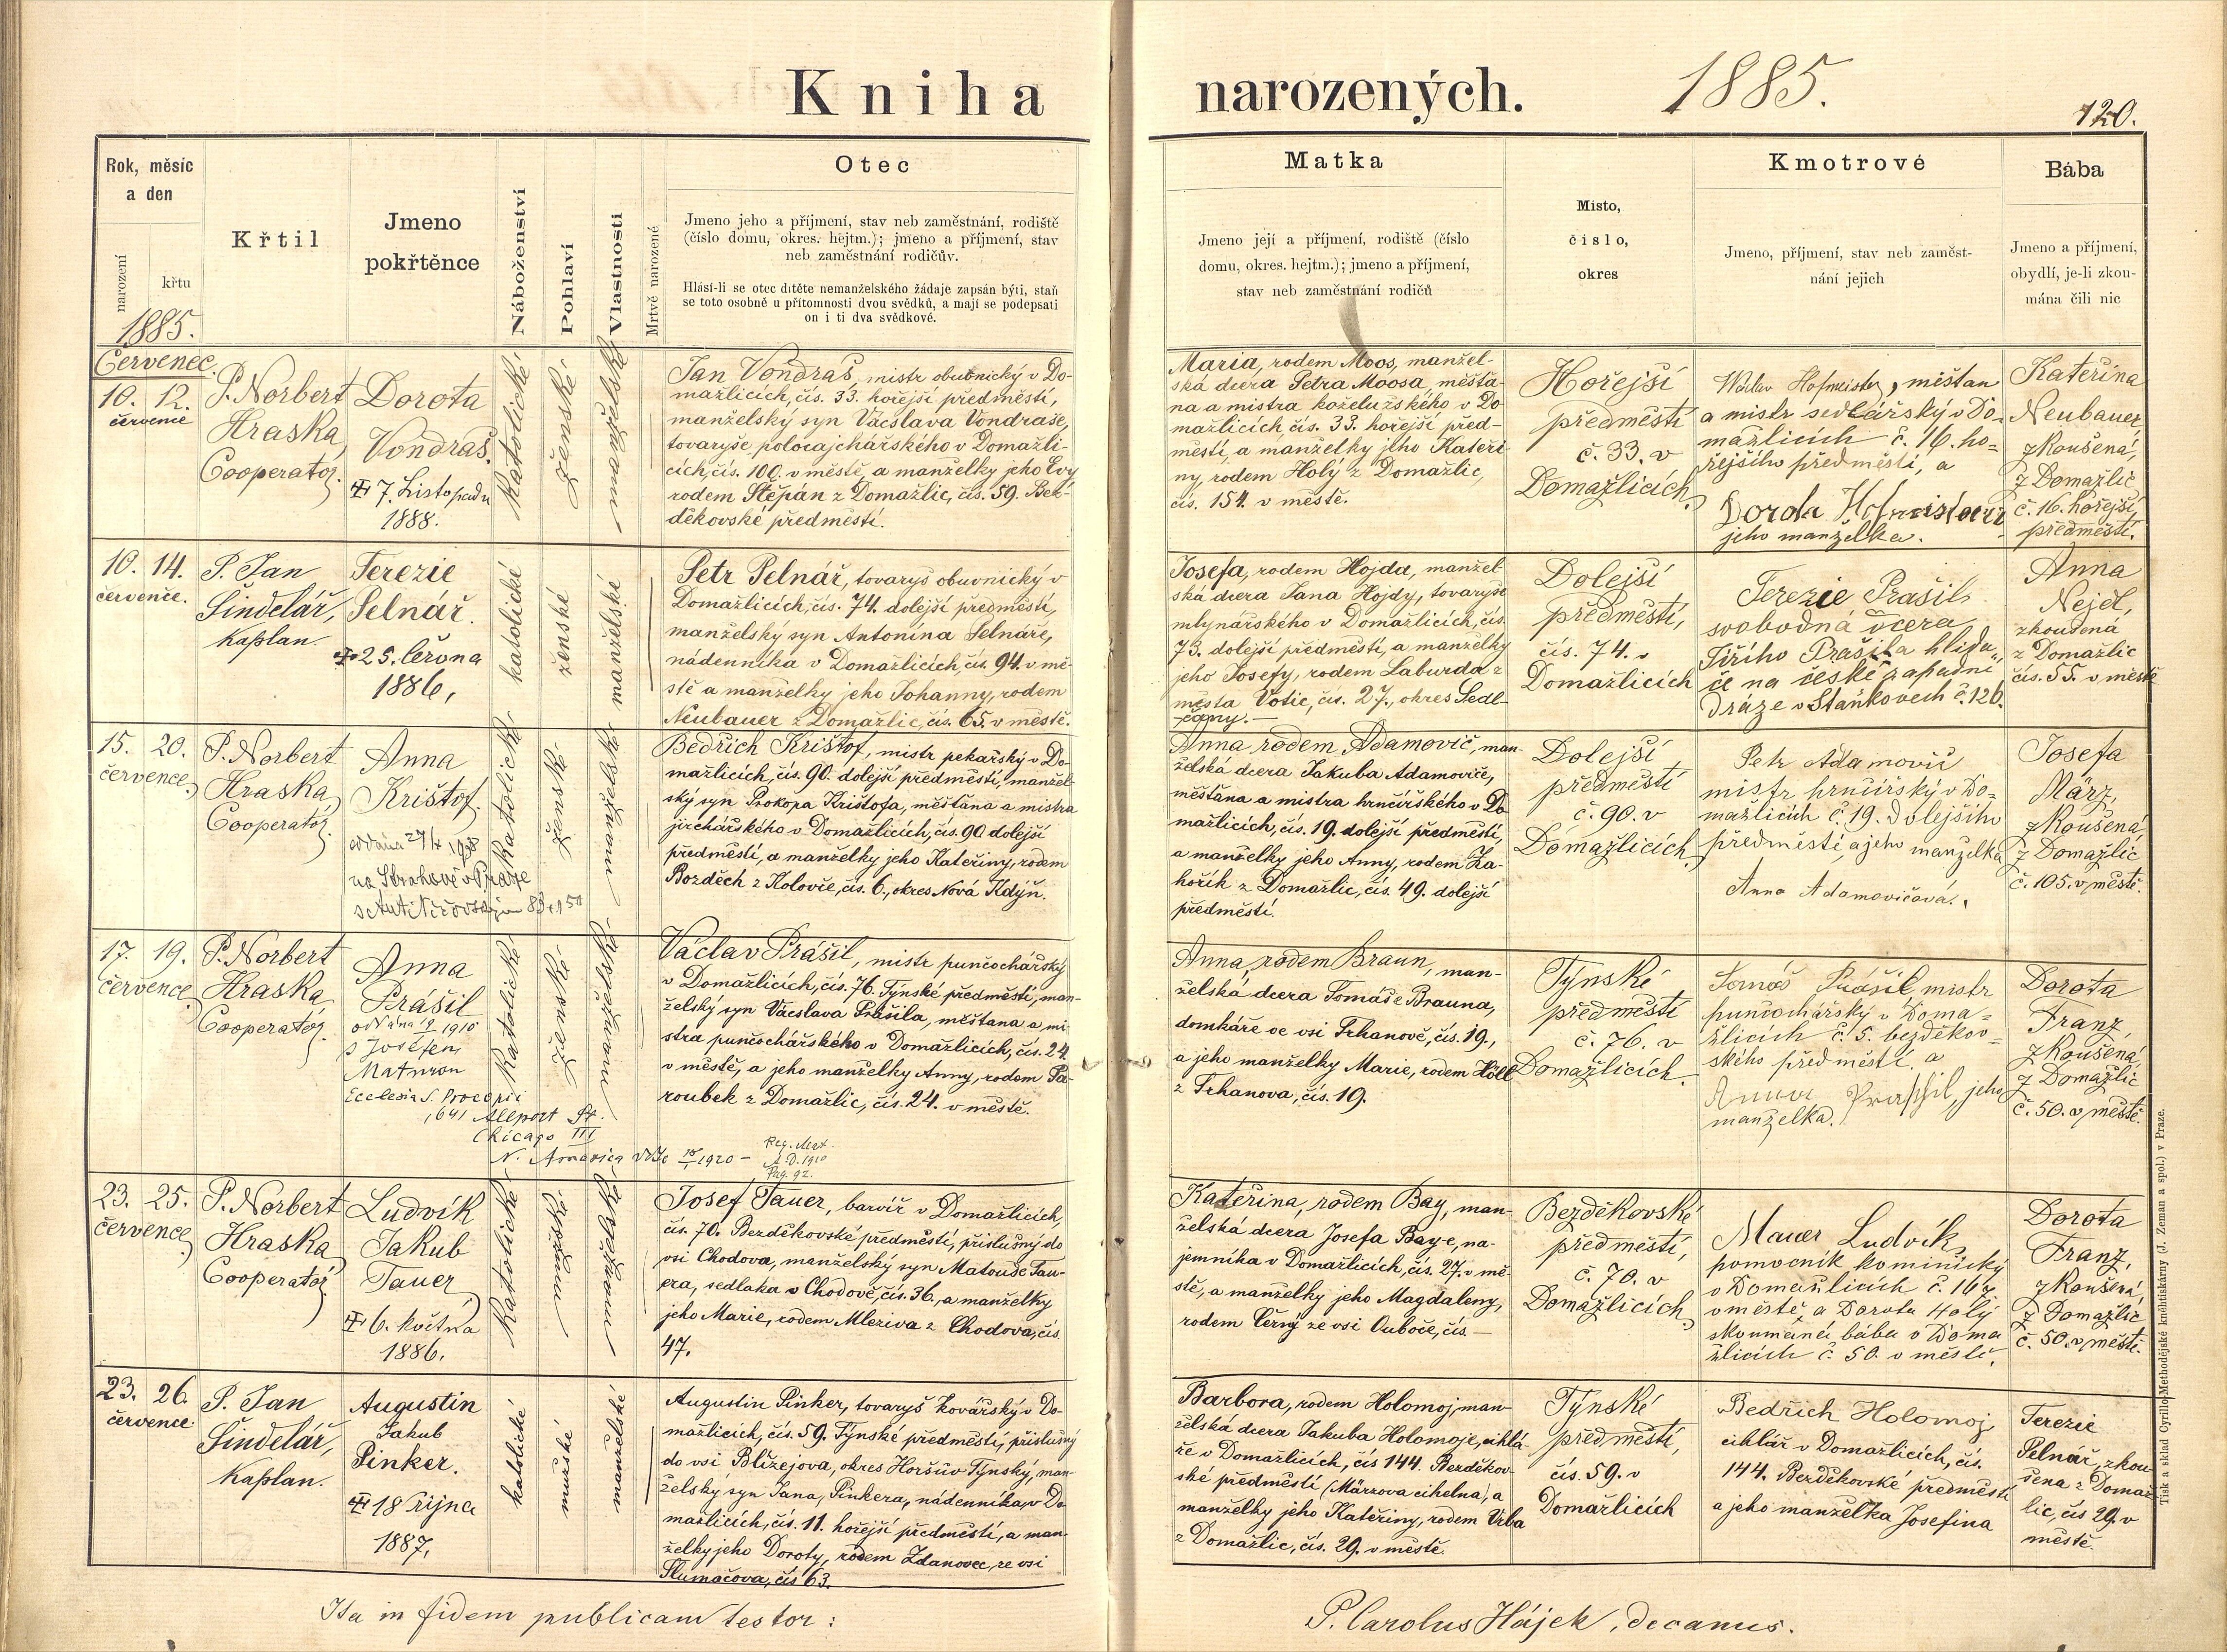 Kniha narozených. 1885.
120.
Rok, měsíc
a den
narození
křtu
Křtil
Jmeno
pokřtěnce
Náboženství
Pohlaví
Vlastnosti
Mrtvě narozené
Otec
Jmeno jeho a příjmení, stav neb zaměstnání, rodiště
(číslo domu, okres. hejtm.); jmeno a příjmení, stav
neb zaměstnání rodičův.
Hlásí-li se otec dítěte nemanželského žádaje zapsán býti, staň
se toto osobně u přítomnosti dvou svědků, a mají se podepsati
on i ti dva svědkové.
Matka
Jmeno její a příjmení, rodiště (číslo
domu, okres. hejtm.); jmeno a příjmení,
stav neb zaměstnání rodičů
Místo,
číslo,
okres
Kmotrové
Jmeno, příjmení, stav neb zaměst-
nání jejich
Bába
Jmeno a příjmení,
obydlí, je-li zkou-
mána čili nic
1885.
Červenec.
10. 12.
července
P. Norbert
Hraska,
Cooperator.
Dorota
Vondraš.
7. Listopadu
1888.
katolické
ženské
manželské
Jan Vondraš, mistr obuvnický v Do-
mažlicích, čís. 33. hořejší předměstí,
manželský syn Václava Vondraše,
tovaryše polocajchářského v Domažli-
cích, čís. 100. v městě, a manželky jeho Evy
rodem Štěpán z Domažlic, čís. 59. Bez-
děkovské předměstí.
Maria, rodem Moos, manžel-
ská dcera Petra Moosa, měšťa-
na a mistra koželužského v Do
mažlicích čís. 33. hořejší před-
městí, a manželky jeho Kateři-
ny, rodem Holý z Domažlic,
čís. 154. v městě.
Hořejší
předměstí
č. 33. v
Domažlicích
Václav Hofmeister, měšťan
a mistr sedlářský v Do-
mažlicích č. 16. ho-
řejšího předměstí, a
Dorota
jeho manželka.
Kateřina
Neubauer
zkoušená,
z Domažlic
č. 16. hořejší
předměstí.
10. 14.
července.
P. Jan
Šindelář,
kaplan.
Terezie
Pelnář.
25. června
1886,
katolické
ženské
manželské
Petr Pelnář, tovaryš obuvnický v
Domažlicích, čís. 74. dolejší předměstí,
manželský syn Antonína Pelnáře,
nádenníka v Domažlicích, čís. 94. v mě-
stě a manželky jeho Johanny, rodem
Neubauer z Domažlic, čís. 65. v městě.
Josefa, rodem Hojda, manžel
ská dcera Jana Hojdy, tovaryše
mlynářského v Domažlicích, čís.
73. dolejší předměstí, a manželky
jeho Josefy, rodem Laburda z
města Votic, čís. 27., okres Sedl-
čany.
Dolejší
předměstí,
čís. 74. v
Domažlicích
Terezie Prašil,
svobodná dcera
Jiřího Prašila hlída-
če na české západní
dráze v Staňkovech č. 126.
Anna
Nejdl,
zkoušená
z Domažlic
čís. 55. v městě
15. 20.
července
P. Norbert
Hraska,
Cooperator
Anna
Krištof.
na Strahově v Praze
katolické
ženské
manželské
Bedřich Krištof, mistr pekařský v Do-
mažlicích, čís. 90. dolejší předměstí, manžel-
ský syn Prokopa Krištofa, měšťana a mistra
jirchářského v Domažlicích, čís. 90 dolejší
předměstí, a manželky jeho Kateřiny, rodem
Bozděch z Kolovče, čís. 6., okres Nová Kdýň.
Anna rodem Adamovič, man-
želská dcera Jakuba Adamoviče,
měšťana a mistra hrnčířského v Do
mažlicích, čís. 19. dolejší předměstí,
a manželky jeho Anny, rodem Za-
hořík z Domažlic, čís. 49. dolejší
předměstí.
Dolejší
předměstí
č. 90. v
Domažlicích
Petr Adamovič
mistr hrnčířský v Do-
mažlicích č. 19. dolejšího
předměstí, a jeho manželka
Anna Adamovičová.
Josefa
März,
zkoušená
z Domažlic
č. 105. v městě.
17. 19.
července
P. Norbert
Hraska,
Cooperator.
Anna
Prášil
oddána 1910
s Josefem
Ecclesia S. Procopii
1641 Allport St.
Chicago Ill
N. America 1920 –
Reg. Mat.
A. D. 1910
Pag. 92.
katolické
ženské
manželské
Václav Prášil, mistr punčochářský
v Domažlicích, čís. 76. Týnské předměstí, man-
želský syn Václava Prášila, měšťana a mi
stra punčochářského v Domažlicích, čís. 24.
v městě, a jeho manželky Anny, rodem Pa-
roubek z Domažlic, čís. 24. v městě.
Anna, rodem Braun, man-
želská dcera Tomáše Brauna,
domkáře ve vsi Trhanově, čís. 19.,
a jeho manželky Marie, rodem Höll
z Trhanova, čís. 19.
Týnské
předměstí
č. 76. v
Domažlicích.
Tomáš Prášil mistr
punčochářský v Doma-
žlicích č. 5. bezděkov-
ského předměstí. a
Anna Praššil, jeho
manželka.
Dorota
Franz,
zkoušená
z Domažlic
č. 50. v městě.
23. 25.
července
P. Norbert
Hraska
Cooperator
Ludvík
Jakub
Tauer
6. května
1886.
katolické
mužské
manželské
Josef Tauer, barvíř v Domažlicích,
čís. 70. Bezděkovské předměstí, příslušný do
vsi Chodova, manželský syn Matouše Tau-
era, sedláka v Chodově, čís. 36., a manželky
jeho Marie, rodem Mleziva z Chodova, čís.
47.
Kateřina, rodem Bay, man-
želská dcera Josefa Baye, na-
jemníka v Domažlicích, čís. 27. v mě-
stě, a manželky jeho Magdaleny,
rodem Černý ze vsi Ouboče, čís. —
Bezděkovské
předměstí,
č. 70. v
Domažlicích
Mauer Ludvík,
pomocník kominický
v Domažlicích č. 167
v městě, a Dorota Holý
skoumaná bába v Doma
žlicích č. 50. v městě.
Dorota
Franz,
zkoušená,
z Domažlic
č. 50. v městě.
23. 26.
července
P. Jan
Šindelář,
kaplan.
Augustin
Jakub
Pinker.
18 října
1887,
katolické
mužské
manželské
Augustin Pinker, tovaryš kovářský v Do-
mažlicích, čís. 59. Týnské předměstí, příslušný
do vsi Blížejova, okres Horšův Týnský, man-
želský syn Jana, Pinkera, nádenníka, v Do
mažlicích, čís. 11. hořejší předměstí, a man-
želky jeho Doroty, rodem Zdanovec, ze vsi
Tlumačova, čís 63.
Barbora, rodem Holomoj, man
želská dcera Jakuba Holomoje, cihlá-
ře v Domažlicích, čís 144. Bezděkov-
ské předměstí (Märzova cihelna), a
manželky jeho Kateřiny, rodem Vrba
z Domažlic, čís. 29. v městě.
Týnské
předměstí,
čís. 59. v
Domažlicích
Bedřich Holomoj
cihlář v Domažlicích, čís.
144. Bezděkovské předměstí
a jeho manželka Josefina
Terezie
Pelnář, zkou
šena z Domaž
lic, čís 29. v
městě.
Ita in fidem publicam testor:
P. Carolus Hájek, decanus.
Tisk a sklad Cyrillo-Methodějské knihtiskárny (J. Zeman a spol.) v Praze.